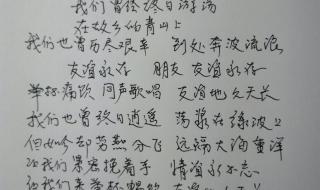 我们曾终日游荡
在故乡的青山上
我们也曾历尽艰辛 到处奔波流浪
友谊永存 朋友 友谊永存
举杯痛饮 同声歌唱 友谊地久天长
我们也曾终日逍遥 荡桨在绿波上
但如今却劳燕分飞 远隔大海重洋
让我们紧密挽着手 情谊永不忘
让我们来举杯畅饮